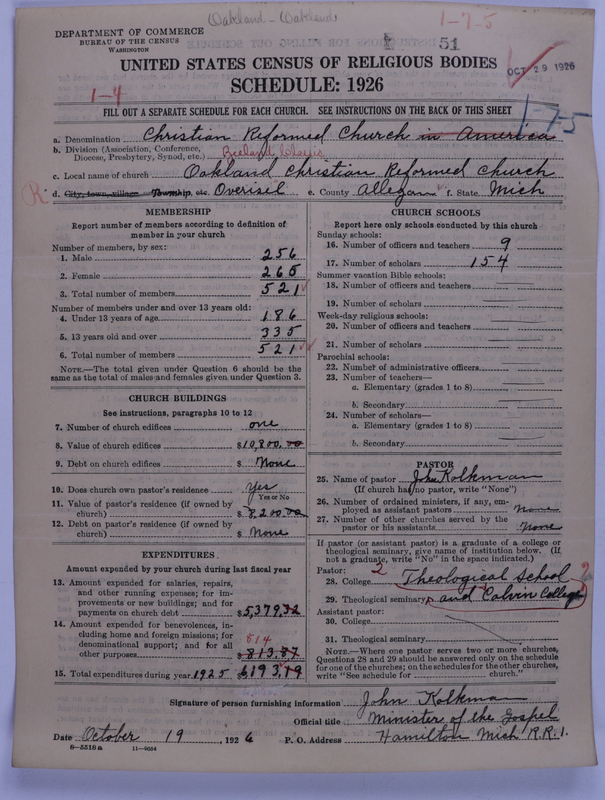 Oakland - Oakland
1-7-5
DEPARTMENT OF COMMERCE
BUREAU OF THE CENSUS
WASHINGTON
51
OCT 29 1926
UNITED STATES CENSUS OF RELIGIOUS BODIES
SCHEDULE: 1926
1-4
FILL OUT A SEPARATE SCHEDULE FOR EACH CHURCH. SEE INSTRUCTIONS ON THE BACK OF THIS SHEET
1-7-5
a. Denomination Christian Reformed Church in America
b. Division (Association, Conference,
Diocese, Presbytery, Synod, etc.) Zeeland Classis
c. Local name of church Oakland Christian Reformed Church
R
d. City, town, village Township, etc. Overisel e. County Allegan f. State Mich
MEMBERSHIP
Report number of members according to definition of
member in your church
Number of members, by sex:
1. Male 256
2. Female 265
3. Total number of members 521
Number of members under and over 13 years old:
4. Under 13 years of age 186
5. 13 years old and over 335
6. Total number of members 521
NOTE.—The total given under Question 6 should be
same as the total of males and females given under Question 3.
CHURCH BUILDINGS
See instructions, paragraphs 10 to 12
7. Number of church edifices one
8. Value of church edifices $10,800.00
9. Debt on church edifices $ None
10. Does church own pastor's residence yes
Yes or No
11. Value of pastor's residence (if owned by
church) $ 8,200.00
12. Debt on pastor's residence (if owned by
church) $ None
EXPENDITURES
Amount expended by your church during last fiscal year
13. Amount expended for salaries, repairs,
and other running expenses; for im-
provements or new buildings; and for
payments on church debt $5,379.32
14. Amount expended for benevolences, in-
cluding home and foreign missions; for
denominational support; and for all
814
other purposes $ 813.87
15. Total expenditures during year 1925 6193.19
CHURCH SCHOOLS
Report here only schools conducted by this church
Sunday schools:
16. Number of officers and teachers 9
17. Number of scholars 154
Summer vacation Bible schools:
18. Number of officers and teachers
19. Number of scholars
Week-day religious schools:
20. Number of officers and teachers
21. Number of scholars
Parochial schools:
22. Number of administrative officers
23. Number of teachers—
a. Elementary (grades 1 to 8)
b. Secondary
24. Number of scholars—
a. Elementary (grades 1 to 8)
b. Secondary
PASTOR
25. Name of pastor John Kolkman
(If church has no pastor, write "None")
26. Number of ordained ministers, if any, em-
ployed as assistant pastors None
27. Number of other churches served by the
pastor or his assistants None
If pastor (or assistant pastor) is a graduate of a college or
theological seminary, give name of institution below. (If
not a graduate, write "No" in the space indicated.)
Pastor: 2
28. College Theological School 2
29. Theological seminary and Calvin College
Assistant pastor:
30. College
31. Theological seminary
NOTE.—Where one pastor serves two or more churches,
Questions 28 and 29 should be answered only on the schedule
for one of the churches; on the schedules for the other churches,
write "See schedule for church."
Signature of person furnishing information John Kolkman
Official title Minister of the Gospel
Date October 19, 1926 P. O. Address Hamilton Mich R.R.1.
8-5518a 11-9054